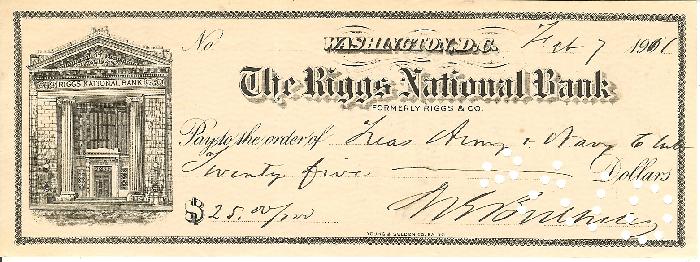 RIGGS NATIONAL BANK
No
WASHINGTON, D.C. Feb 7 1901
The Riggs National Bank
FORMERLY RIGGS & CO.
Pay to the order of Treas Army & Navy Club
Twenty five Dollars
$ 25.00/100
YOUNG & SELDEN CO. BALTO.